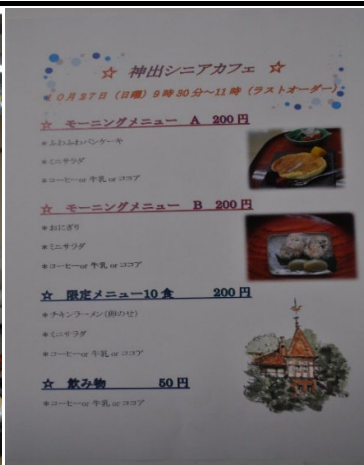 ☆ 神出シニアカフェ ☆
10月27日(日曜)9時30分～11時(ラストオーダー)
☆ モーニングメニュー A 200円
＊ふわふわパンケーキ
＊ミニサラダ
＊コーヒーor 牛乳 or ココア
☆ モーニングメニュー B 200円
＊おにぎり
＊ミニサラダ
＊コーヒーor 牛乳 or ココア
☆ 限定メニュー10食 200円
＊チキンラーメン(卵のせ)
＊ミニサラダ
＊コーヒーor 牛乳 or ココア
☆ 飲み物 50円
＊コーヒーor 牛乳 or ココア